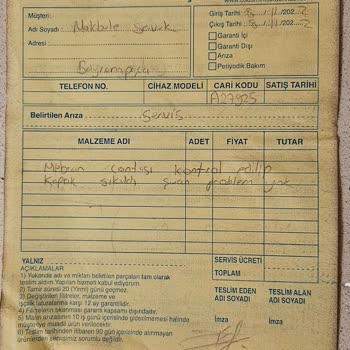 Müşteri:
Adı Soyadı Makbule
Adresi
Bayrampaşa
Giriş Tarihi /202
Çıkış Tarihi /202
Garanti İçi
Garanti Dışı
Arıza
Periyodik Bakım
TELEFON NO. CİHAZ MODELİ CARİ KODU SATIŞ TARİHİ
A27925
Belirtilen Arıza servis
MALZEME ADI ADET FİYAT TUTAR
contası kontrol edilip
Kapak sıkıldı şuan problem yok
YALNIZ SERVİS ÜCRETİ
AÇIKLAMALAR TOPLAM
1) Yukarıda adı ve miktarı belirtilen parçaları tam olarak
teslim aldım. Yapılan hizmeti kabul ediyorum.
2) Tamir süresi 20 (Yirmi) günü geçmez.
3) Değiştirilen filtreler, malzeme ve
işçilik faturalarına karşı 12 ay garantilidir.
4) Filtrelerin tıkanması garanti kapsamı dışındadır.
5) Malın arızasının 10 iş günü içinde giderilmemesi halinde
müşteriye muadil ürün verilecektir.
6) Teslim tarihinden itibaren 90 gün içerisinde alınmayan
ürünlerden servisimiz sorumlu değildir.
TESLİM EDEN
ADI SOYADI
İmza
TESLİM ALAN
ADI SOYADI
İmza